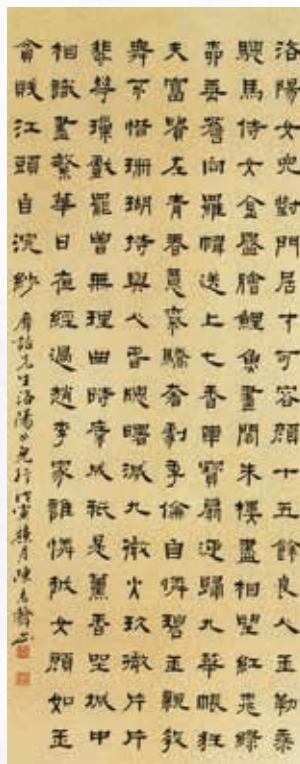 洛陽女兒對門居才可容顏十五餘良人玉勒乘
驄馬侍女金盤膾鯉魚畫閣朱樓盡相望紅桃綠
柳垂簷向羅幃送上七香車寶扇迎歸九華帳狂
夫富貴在青春意氣驕奢劇季倫自憐碧玉親教
舞不惜珊瑚持與人春窗曙滅九微火九微片片
飛花璅戲罷曾無理曲時妝成祇是薰香坐城中
相識盡繁華日夜經過趙李家誰憐越女顏如玉
貧賤江頭自浣紗 摩詰先生洛陽女兒行 戊寅 月陳